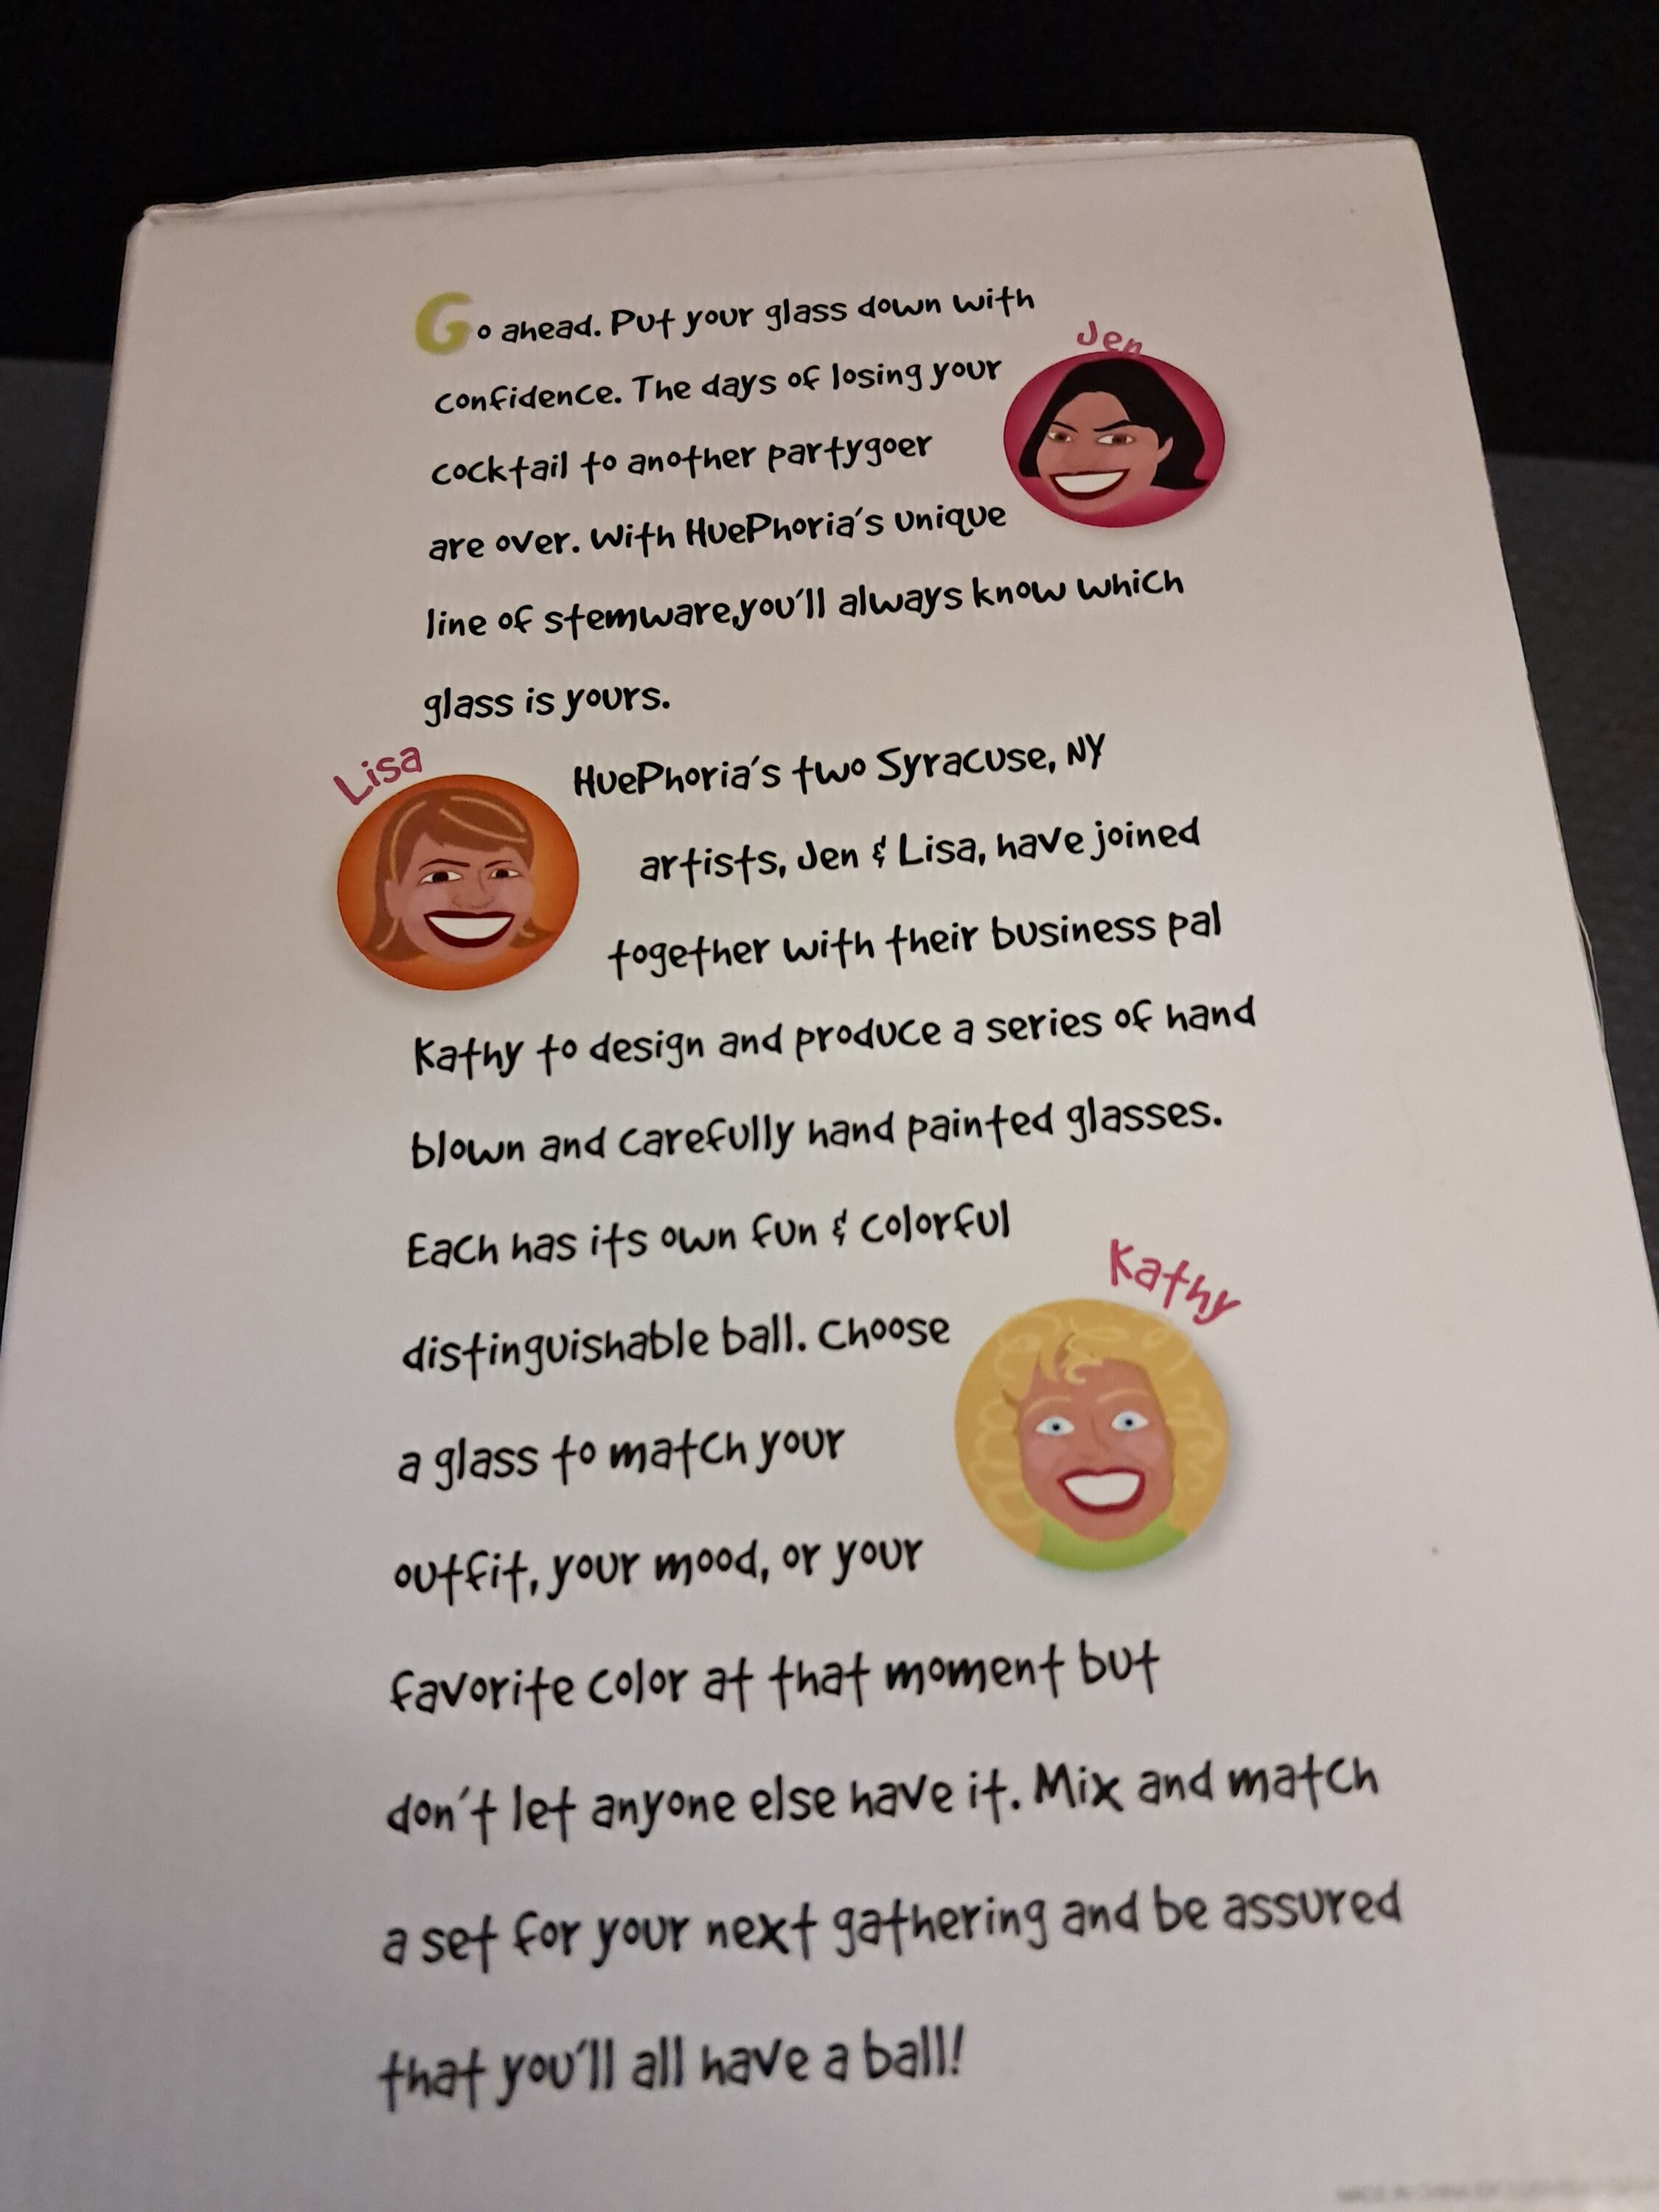 Go ahead. Put your glass down with
Jen
confidence. The days of losing your
cocktail to another partygoer
are over. With HuePhoria's unique
line of stemware,you'll always know which
glass is yours.
Lisa
HuePhoria's two Syracuse, NY
artists, Jen & Lisa, have joined
together with their business pal
Kathy to design and produce a series of hand
blown and carefully hand painted glasses.
Each has its own fun & colorful
Kathy
distinguishable ball. Choose
a glass to match your
outfit, your mood, or your
favorite color at that moment but
don't let anyone else have it. Mix and match
a set for your next gathering and be assured
that you'll all have a ball!
MADE IN CHINA